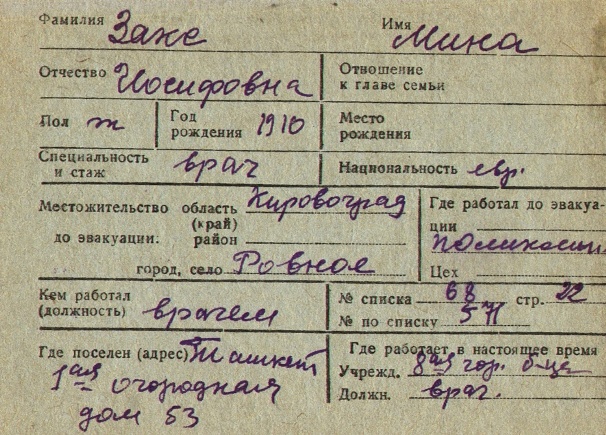 Фамилия Закс Имя Мина
Отчество Иосифовна Отношение к главе семьи
Пол ж Год рождения 1910 Место рождения
Специальность и стаж врач Национальность евр.
Местожительство область Кировоград
(край)
до эвакуации: район
город, село Ровное
Где работал до эвакуа-
ции
Цех
Кем работал
(должность) врачем
№ списка 68 стр. 22
№ по списку
Где поселен (адрес) Ташкент
1ая огородная
дом 53
Где работает в настоящее время
Учрежд. 8ая гор. б-ца
Должн. врач.